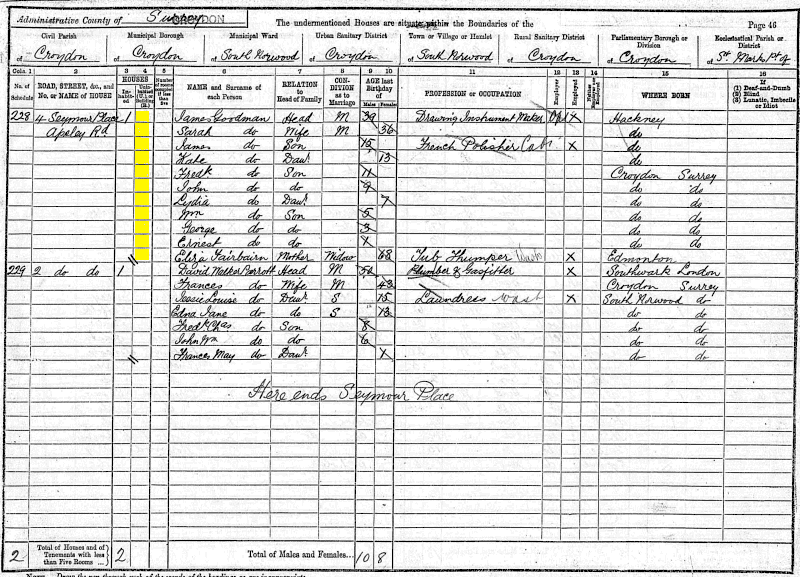 Administrative County of Surrey CROYDON The undermentioned Houses are situate within the Boundaries of the Page 46
Civil Parish Municipal Borough Municipal Ward Urban Sanitary District Town or Village or Hamlet Rural Sanitary District Parliamentary Borough or Division Ecclesiastical Parish or District
of Croydon of Croydon of South Norwood of Croydon of South Norwood of Croydon of Croydon of St Mark Pt of
Cols. 1 2 3 4 5 6 7 8 9 10 11 12 13 14 15 16
No. of Schedule ROAD, STREET, &c., and No. or NAME of HOUSE HOUSES Inhabited NAME and Surname of each Person RELATION to Head of Family CONDITION as to Marriage AGE last Birthday of Males Females PROFESSION or OCCUPATION Employer Employed WHERE BORN (1) Deaf-and-Dumb (2) Blind (3) Lunatic, Imbecile or Idiot
228 4 Seymour Place 1 James Goodman Head M 39 Drawing Instrument Maker X Hackney
Apsley Rd Sarah do Wife M 36 do
James do Son 15 French Polisher Cab X do
Kate do Daur 13 do
Fredk do Son 11 Croydon Surrey
John do do 9 do do
Lydia do Daur 7 do do
Wm do Son 5 do do
George do do 3 do do
Ernest do do X do do
Eliza Fairbairn Mother Widow 68 Tub Thumper X Edmonton
229 2 do do 1 David Walker Parrott Head M Plumber & Gasfitter X Southwark London
Frances do Wife M 43 Croydon Surrey
Jessie Louise do Daur S 15 Laundress Wash X South Norwood do
Edna Jane do do S 13 do do
Fredk Chas do Son 8 do do
John Wm do do 6 do do
Frances May do Daur X do do
Here ends Seymour Place
2 Total of Houses and of Tenements with less than Five Rooms 2 Total of Males and Females... 10 8